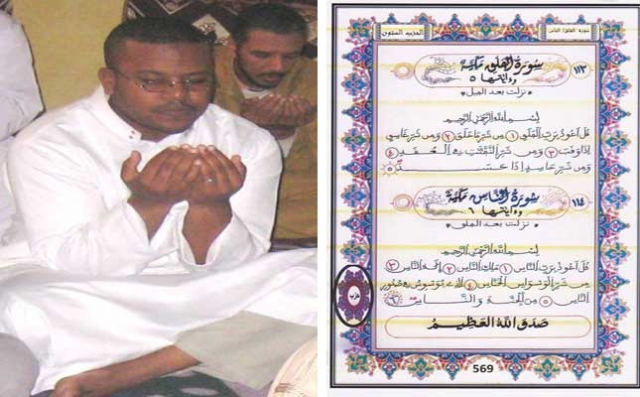 سورة الفلق مكية
وءاياتها ٥
نزلت بعد الفيل
١١٣
بسم الله الرحمن الرحيم
قل أعوذ برب الفلق ١ من شر ما خلق ٢ ومن شر غاسق
إذا وقب ٣ ومن شر النفثت في العقد ٤
ومن شر حاسد إذا حسد ٥
سورة الناس مكية
وءاياتها ٦
نزلت بعد الفلق
١١٤
بسم الله الرحمن الرحيم
قل أعوذ برب الناس ١ ملك الناس ٢ إله الناس ٣
من شر الوسواس الخناس ٤ الذي يوسوس في صدور
الناس ٥ من الجنة والناس ٦
حزب
صدق الله العظيم
569